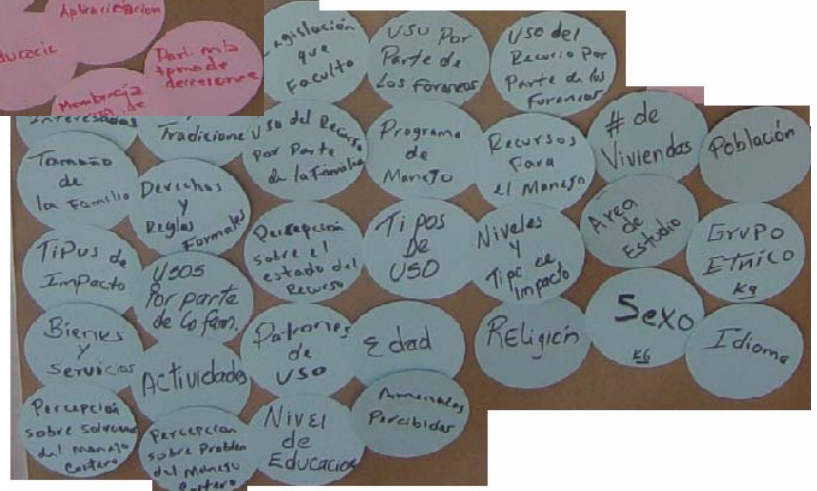 Aplicación
Part. en la
toma de
decisiones
Membrecía
de
Legislación
que
Faculta
USO Por
Parte de
Los foraneos
USO del
Recurso Por
Parte de los
Foraneos
Interesados
Tradicione
Uso del Recurso
Por Parte
de la Familia
Programa
de
Manejo
Recursos
Para
el Manejo
# de
Viviendas
Población
Tamaño
de
la Familia
Derechos
y
Reglas
Formales
Percepción
sobre el
estado del
Recurso
TiPOS
DE
USO
Niveles
y
Tipo de
Impacto
Area
de
Estudio
GrUPO
ETNiCO
Kg
TiPus de
Impacto
USOS
Por parte
de la fam.
Bienes
y
Servicios
Actividades
Patrones
de
USO
Edad
RELigión
Sexo
KG
Idioma
Percepción
sobre soluciones
del manejo
Costero
Percepcion
sobre Problem
del Manejo
Costero
NivEl
de
Educacion
Amenazas
Percibidas